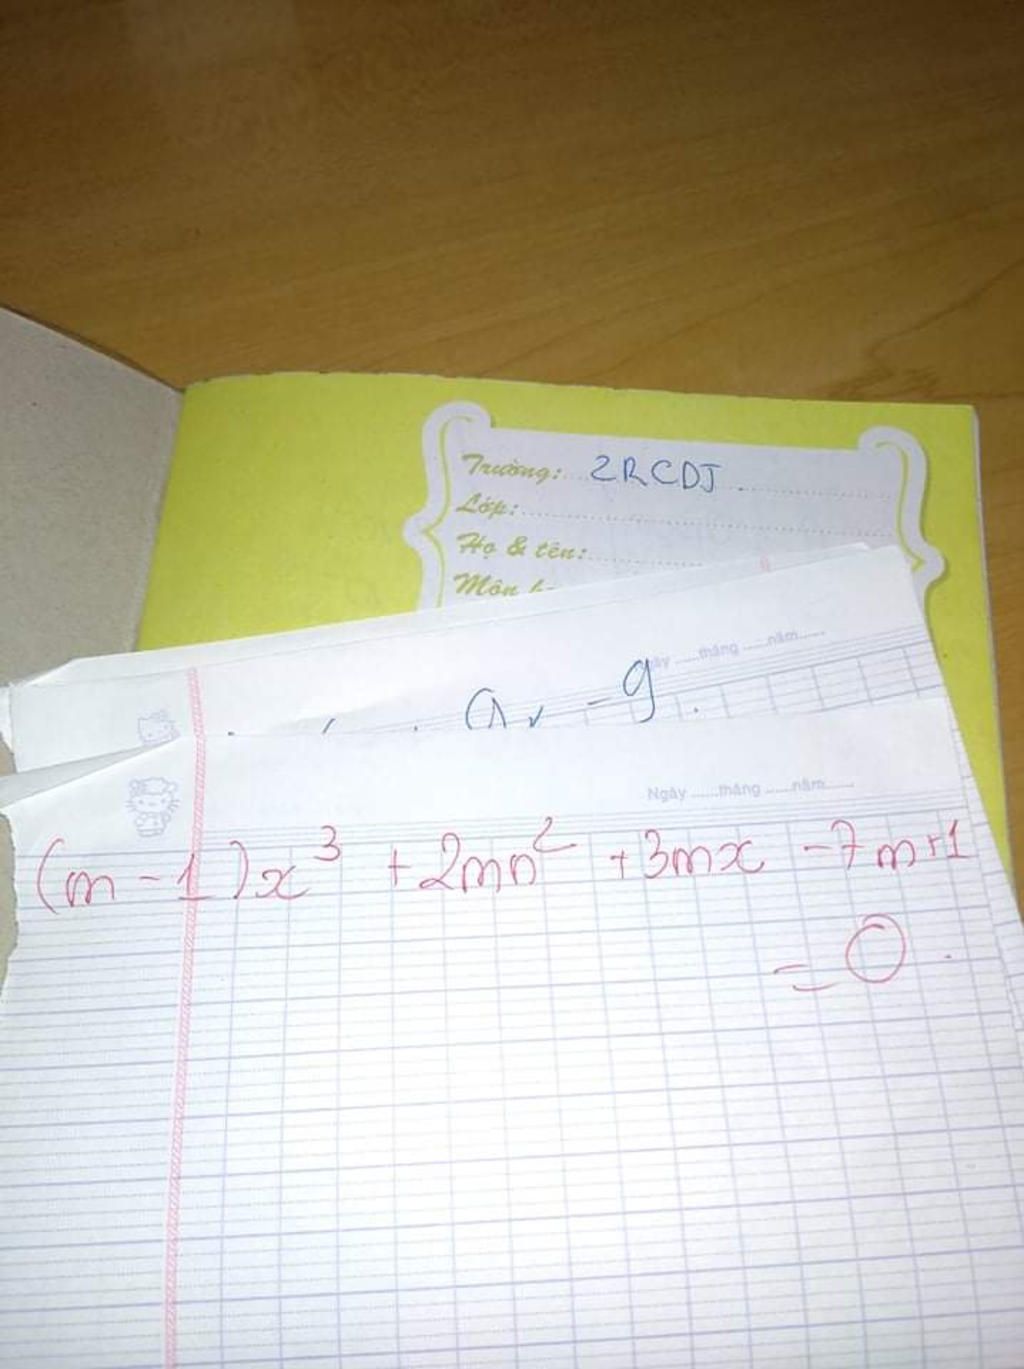 Trường: 2RCDJ
Lớp:
Họ & tên:
Môn
tháng năm
9
Ngày tháng năm
(m - 1)x³ + 2mn² + 3mx - 7m+1
= 0.